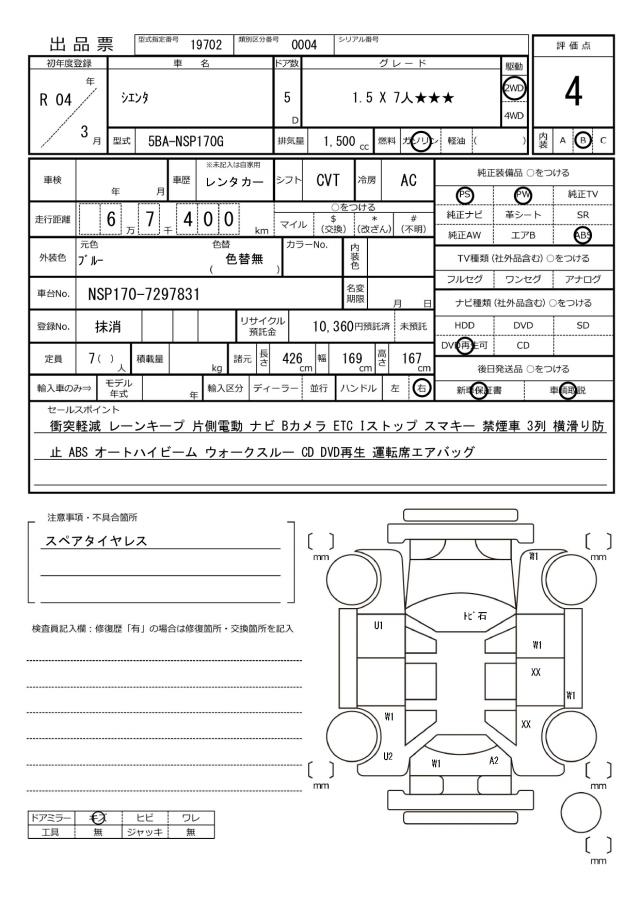 出品票 型式指定番号 19702 類別区分番号 0004 シリアル番号
評価点
4
初年度登録 車名 ドア数 グレード 駆動
R 04 年 3 月 シエンタ 5 D 1.5 X 7人★★★ 2WD 4WD
型式 5BA-NSP170G 排気量 1,500 cc 燃料 ガソリン 軽油 ( )
内装 A B C
車検 年 月 車歴 ※未記入は自家用 レンタカー シフト CVT 冷房 AC
走行距離 6 万 7 千 4 0 0 km
○をつける
マイル $(交換) *(改ざん) #(不明)
外装色 元色 ブルー 色替 ( 色替無 ) カラーNo. 内装色
車台No. NSP170-7297831 名変期限 月 日
登録No. 抹消 リサイクル預託金 10,360円預託済 未預託
定員 7( )人 積載量 kg 諸元 長さ 426 cm 幅 169 cm 高さ 167 cm
輸入車のみ⇒ モデル年式 年 輸入区分 ディーラー 並行 ハンドル 左 右
純正装備品 ○をつける
PS PW 純正TV
純正ナビ 革シート SR
純正AW エアB ABS
TV種類(社外品含む)○をつける
フルセグ ワンセグ アナログ
ナビ種類(社外品含む)○をつける
HDD DVD SD
DVD再生可 CD
後日発送品 ○をつける
新車保証書 車輌取説
セールスポイント
衝突軽減 レーンキープ 片側電動 ナビ Bカメラ ETC Iストップ スマキー 禁煙車 3列 横滑り防
止 ABS オートハイビーム ウォークスルー CD DVD再生 運転席エアバッグ
注意事項・不具合箇所
スペアタイヤレス
検査員記入欄:修復歴「有」の場合は修復箇所・交換箇所を記入
ドアミラー キズ ヒビ ワレ
工具 無 ジャッキ 無
[ ] mm
[ ] mm
W1
トビ石
U1
W1
XX
W1
W1
XX
U2
W1
A2
[ ] mm
[ ] mm
[ ] mm